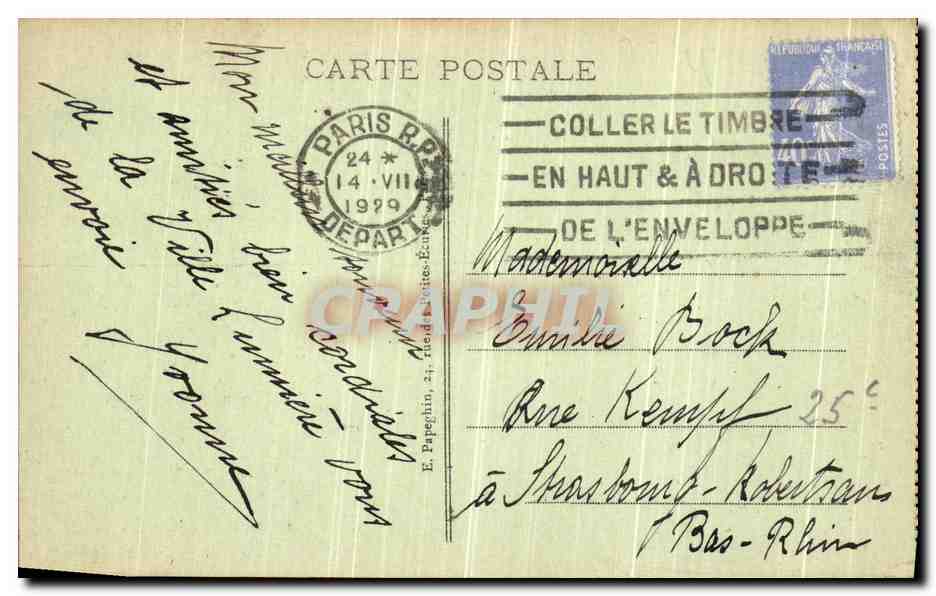 CARTE POSTALE
Mon meilleur souvenir
et amitiés bien cordiales
de la Ville Lumière vous
envoie
Yvonne
PARIS R.P.
24 *
14 · VII
1929
DÉPART
COLLER LE TIMBRE
EN HAUT & À DROITE
DE L'ENVELOPPE
RÉPUBLIQUE FRANÇAISE
POSTES
E. Papeghin, 24, rue des Petites-Écuries
CPAPHIL
Mademoiselle
Emilie Bock
Rue Kempf
25 c
à Strasbourg-Robertsau
Bas-Rhin